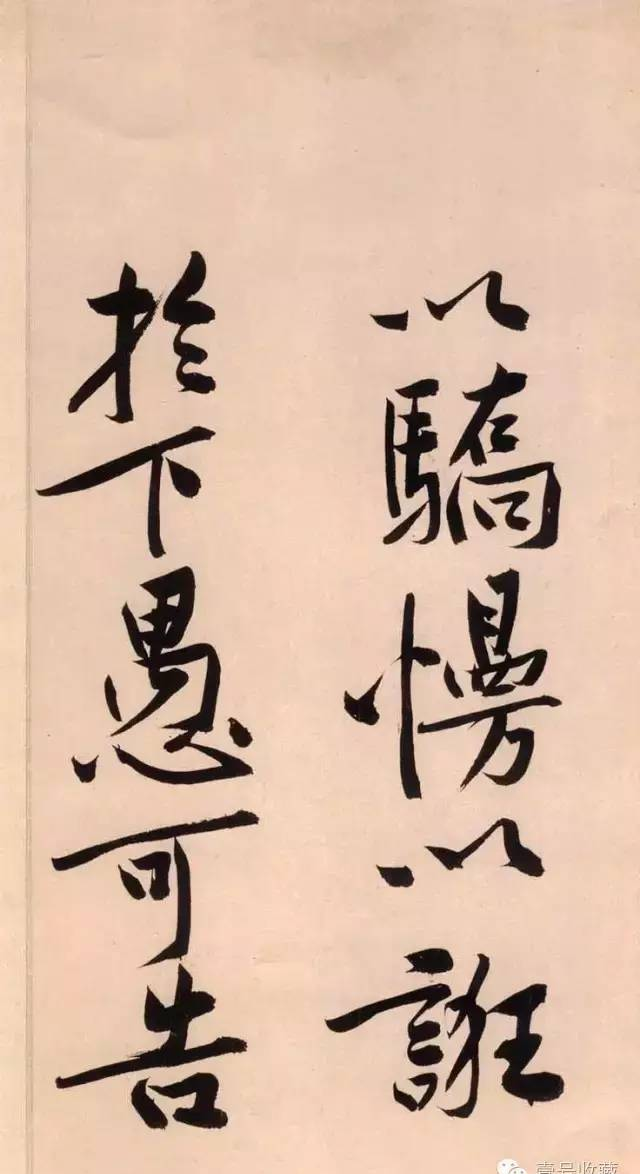 以驕慢以誑
扵下愚可告
壹号收藏